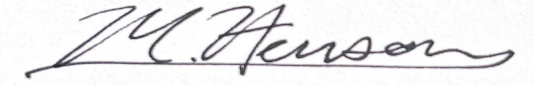 M. Henson